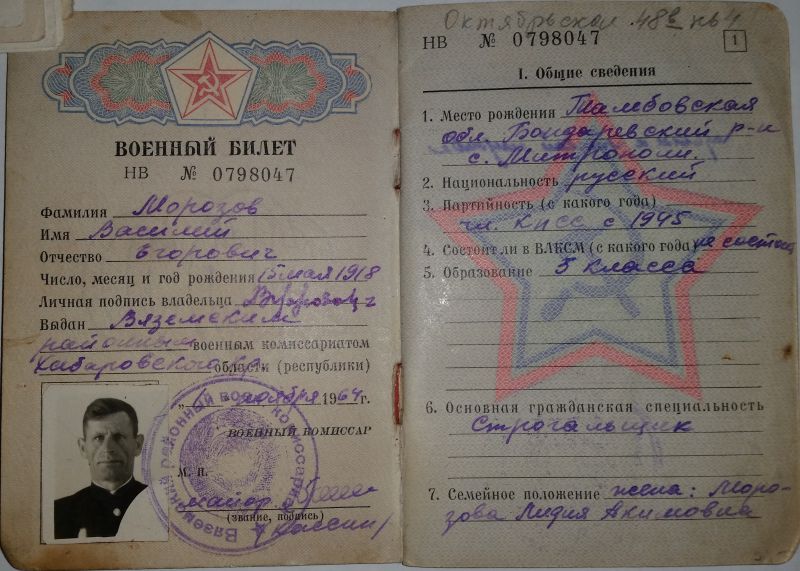 ВОЕННЫЙ БИЛЕТ
НВ № 0798047
Фамилия Морозов
Имя Василий
Отчество Егорович
Число, месяц и год рождения 15 мая 1918
Личная подпись владельца
Выдан Вяземским
районным военным комиссариатом
Хабаровского области (республики)
ноября 1964 г.
ВОЕННЫЙ КОМИССАР
М. П.
майор
(звание, подпись)
Октябрьская 48
НВ № 0798047
1
I. Общие сведения
1. Место рождения Тамбовская
обл. Бондаревский р-н
с. Митрополи.
2. Национальность русский
3. Партийность (с какого года)
чл. КПСС с 1945
4. Состоит ли в ВЛКСМ (с какого года) не состоял
5. Образование 5 класса
6. Основная гражданская специальность
Строгальщик
7. Семейное положение жена: Моро-
зова Лидия Акимовна